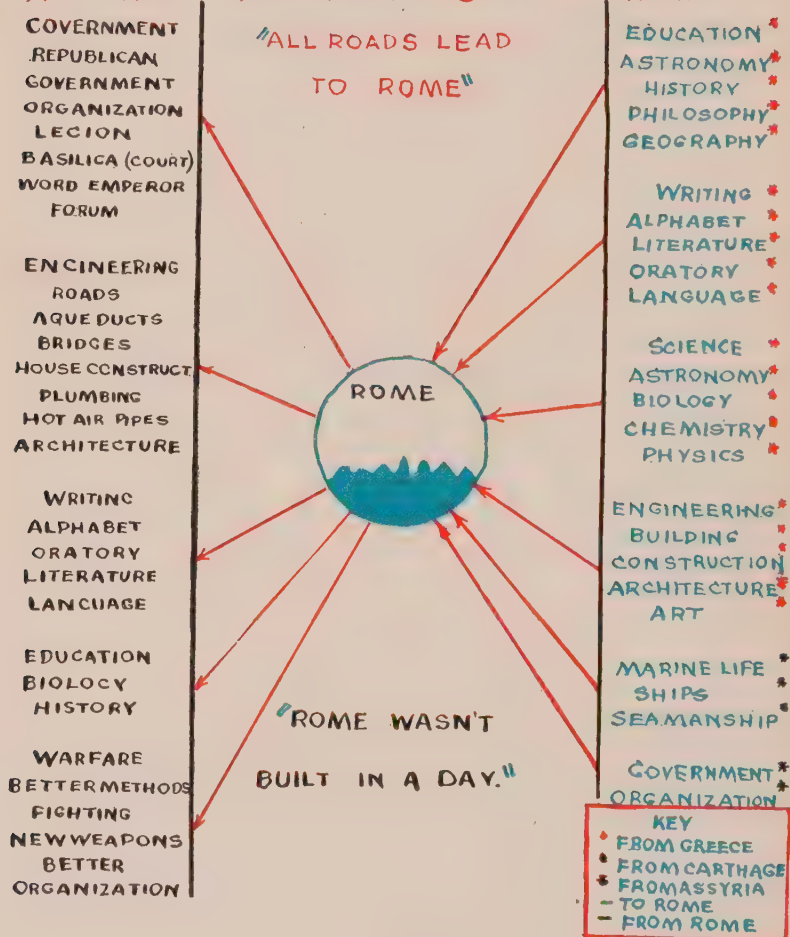 GOVERNMENT
REPUBLICAN
GOVERNMENT
ORGANIZATION
LEGION
BASILICA (COURT)
WORD EMPEROR
FORUM
ENGINEERING
ROADS
AQUEDUCTS
BRIDGES
HOUSE CONSTRUCT.
PLUMBING
HOT AIR PIPES
ARCHITECTURE
WRITING
ALPHABET
ORATORY
LITERATURE
LANGUAGE
EDUCATION
BIOLOGY
HISTORY
WARFARE
BETTER METHODS
FIGHTING
NEW WEAPONS
BETTER
ORGANIZATION
"ALL ROADS LEAD
TO ROME"
ROME
"ROME WASN'T
BUILT IN A DAY."
EDUCATION *
ASTRONOMY *
HISTORY *
PHILOSOPHY *
GEOGRAPHY *
WRITING *
ALPHABET *
LITERATURE *
ORATORY *
LANGUAGE *
SCIENCE *
ASTRONOMY *
BIOLOGY *
CHEMISTRY *
PHYSICS *
ENGINEERING *
BUILDING *
CONSTRUCTION *
ARCHITECTURE *
ART *
MARINE LIFE *
SHIPS *
SEAMANSHIP *
GOVERNMENT *
ORGANIZATION *
KEY
* FROM GREECE
* FROM CARTHAGE
* FROM ASSYRIA
- TO ROME
- FROM ROME